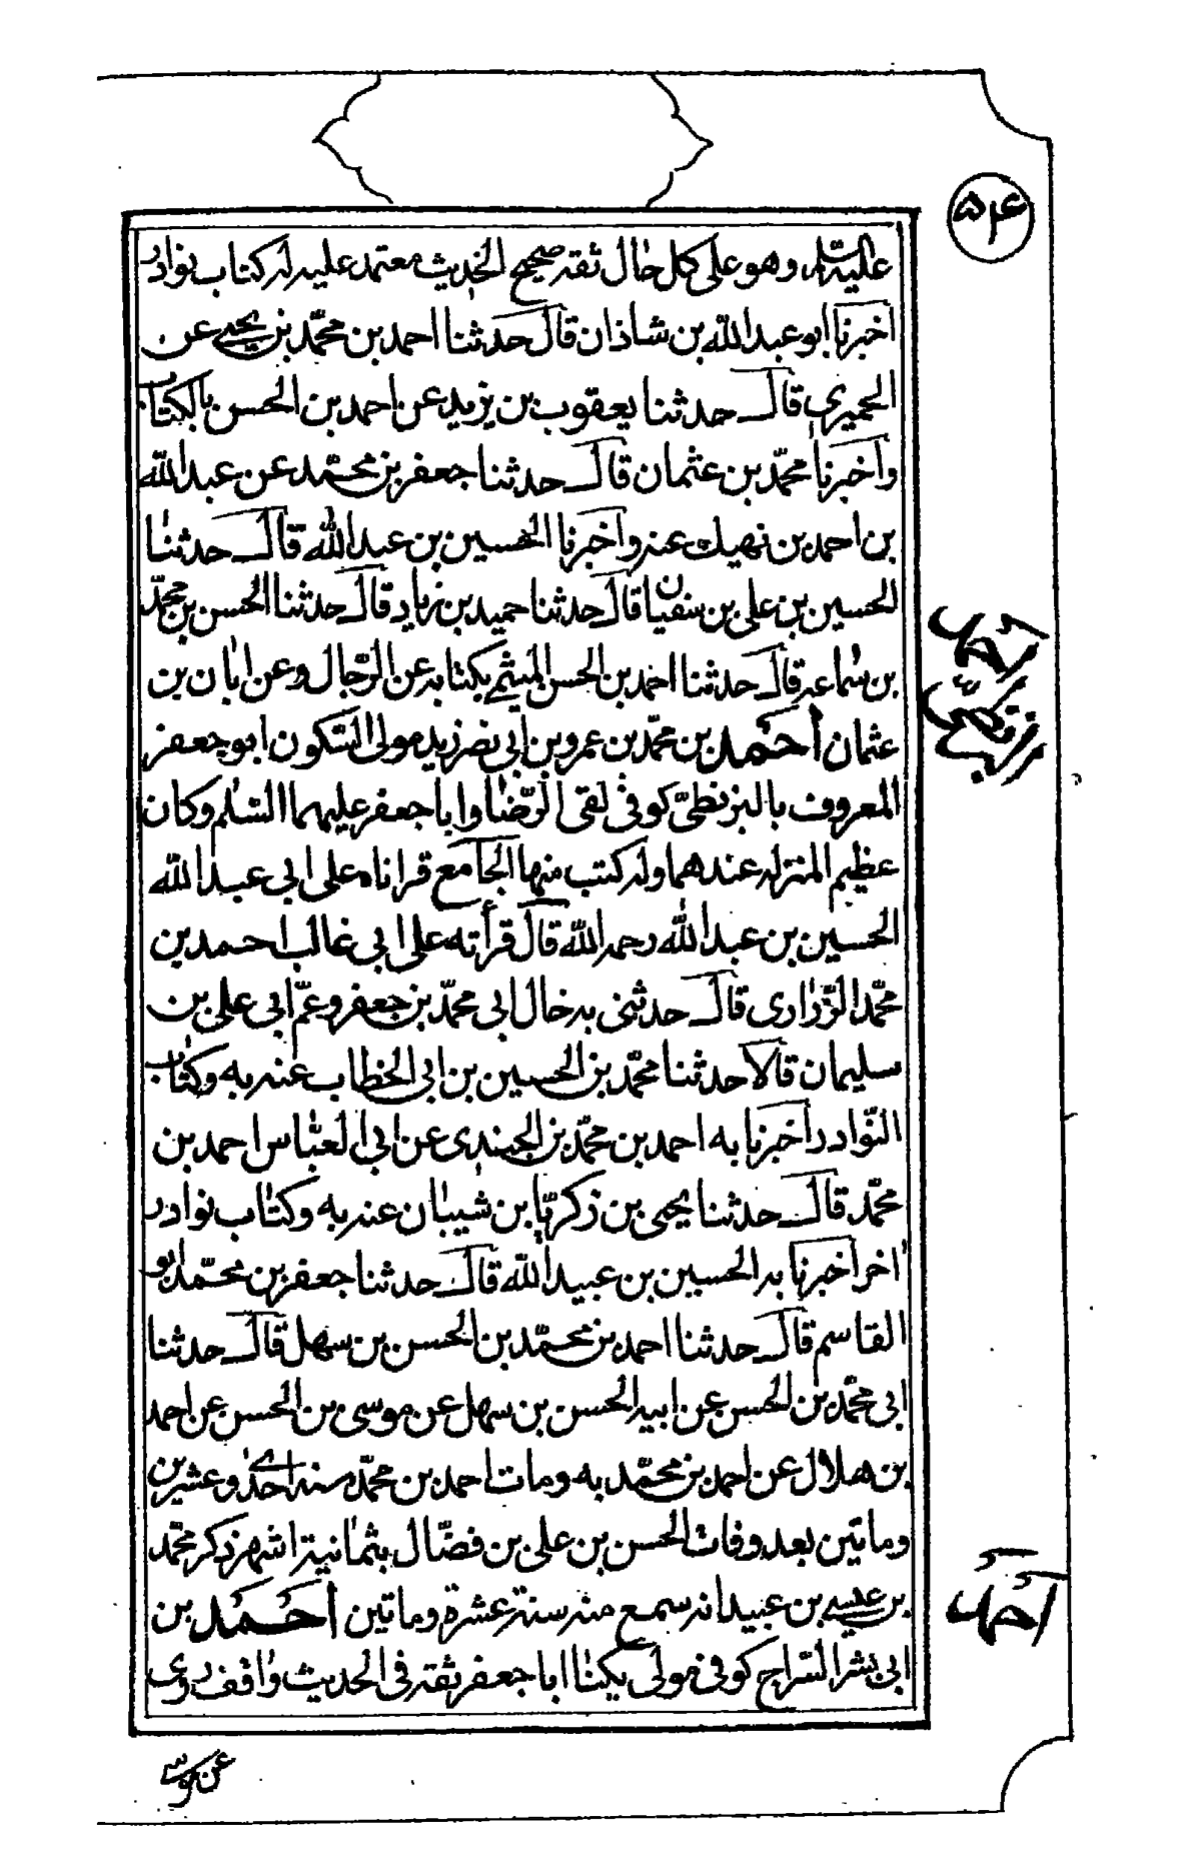 ۵۴
عليه السلم وهو على كل حال ثقه صحيح الحديث معتمد عليه له كتاب نوادر
اخبرنا ابو عبد الله بن شاذان قال حدثنا احمد بن محمّد بن يحيى عن
الحميرى قال حدثنا يعقوب بن يزيد عن احمد بن الحسن بالكتاب
واخبرنا محمّد بن عثمان قال حدثنا جعفر بن محمّد عن عبد الله
بن احمد بن نهيك عنه واخبرنا الحسين بن عبد الله قال حدثنا
الحسين بن على بن سفيان قال حدثنا حميد بن زياد قال حدثنا الحسن بن محمّد
بن سماعه قال حدثنا احمد بن الحسن الميثمى بكتابه عن الرّجال وعن ابان بن
عثمان احمد بن محمّد بن عمرو بن ابى نصر زيد مولى السّكون ابو جعفر
المعروف بالبزنطىّ كوفى لقى الرّضا وابا جعفر عليهما السّلم وكان
عظيم المنزله عندهما وله كتب منها الجامع قراناه على ابى عبد الله
الحسين بن عبد الله رحمه الله قال قرأته على ابى غالب احمد بن
محمّد الزّرارى قال حدثنى به خال ابى محمّد بن جعفر وعمّ ابى على بن
سليمان قالا حدثنا محمّد بن الحسين بن ابى الخطاب عنه به وكتاب
النّوادر اخبرنا به احمد بن محمّد بن الجندى عن ابى العبّاس احمد بن
محمّد قال حدثنا يحيى بن زكريّا بن شيبان عنه به وكتاب نوادر
اخر اخبرنا به الحسين بن عبيد الله قال حدثنا جعفر بن محمّد ابو
القاسم قال حدثنا احمد بن محمّد بن الحسن بن سهل قال حدثنا
ابى محمّد بن الحسن عن ابيه الحسن بن سهل عن موسى بن الحسن عن احمد
بن هلال عن احمد بن محمّد به ومات احمد بن محمّد سنه احدى وعشرين
وماتين بعد وفات الحسن بن على بن فضّال بثمانية اشهر ذكر محمّد
بن عيسى بن عبيد انه سمع منه سنة عشرة وماتين احمد بن
ابى بشر السّراج كوفى مولى يكنا ابا جعفر ثقه فى الحديث واقف روى
احمد
بزنطى
احمد
عن موسى